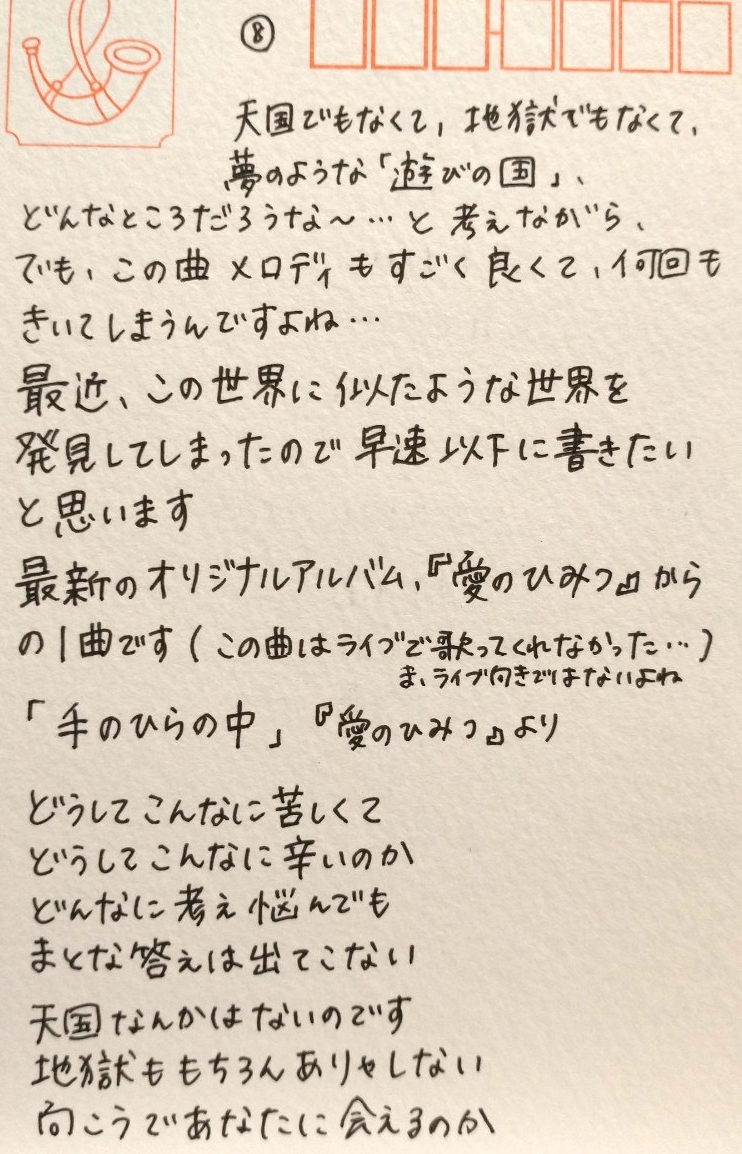 ⑧
天国でもなくて、地獄でもなくて、
夢のような「遊びの国」、
どんなところだろうな〜…と考えながら、
でも、この曲メロディもすごく良くて、何回も
きいてしまうんですよね…
最近、この世界に似たような世界を
発見してしまったので早速以下に書きたい
と思います
最新のオリジナルアルバム、『愛のひみつ』から
の1曲です(この曲はライブで歌ってくれなかった…)
ま、ライブ向きではないよね
「手のひらの中」『愛のひみつ』より
どうしてこんなに苦しくて
どうしてこんなに辛いのか
どんなに考え悩んでも
まとな答えは出てこない
天国なんかはないのです
地獄ももちろんありゃしない
向こうであなたに会えるのか